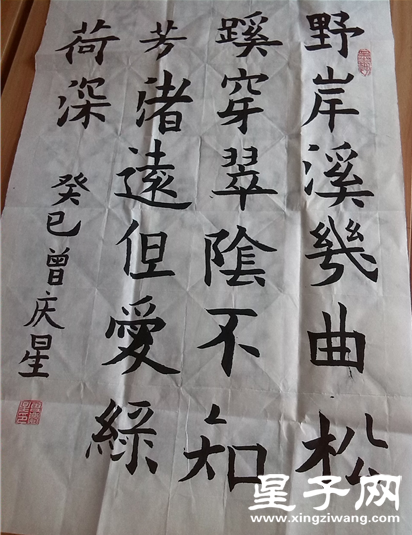 野岸溪幾曲松
蹊穿翠陰不知
芳渚遠但愛綠
荷深
癸巳曾庆星
星子网
www.xingziwang.com